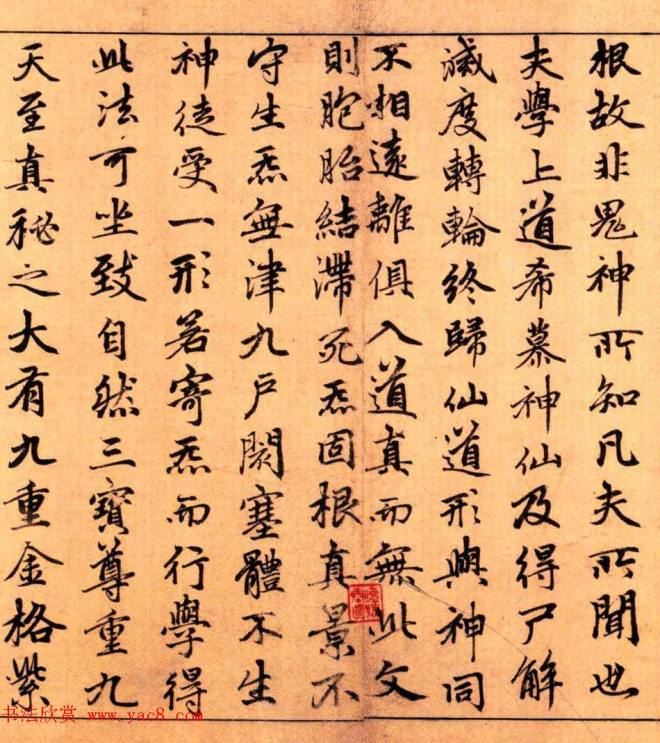 根故非鬼神所知凡夫所聞也
夫學上道希慕神仙及得尸解
滅度轉輪終歸仙道形與神同
不相遠離俱入道真而無此文
則胞胎結滯死炁固根真景不
守生炁無津九戶閼塞體不生
神徒受一形若寄炁而行學得
此法可坐致自然三寶尊重九
天至真秘之大有九重金格紫
书法欣赏 www.yac8.com